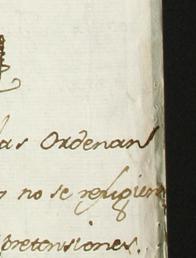 las Ordenan
no se refugien
pretensiones.